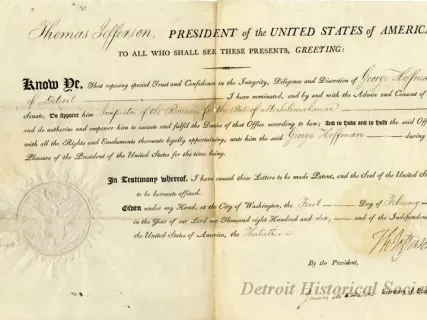 Thomas Jefferson, PRESIDENT of the UNITED STATES of AMERICA
TO ALL WHO SHALL SEE THESE PRESENTS, GREETING:
Know Ye, That reposing special Trust and Confidence in the Integrity, Diligence and Discretion of George Hoffman
of Detroit I have nominated, and by and with the Advice and Consent of
Senate, Do appoint him Inspector of the Revenue for the Port of Michilimakinac
and do authorize and empower him to execute and fulfil the Duties of that Office according to law; And to have and to hold the said Offi
with all the Rights and Emoluments thereunto legally appertaining, unto him the said George Hoffman during
Pleasure of the President of the United States for the time being.
In Testimony whereof, I have caused these Letters to be made Patent, and the Seal of the United St
to be hereunto affixed.
Given under my Hand, at the City of Washington, the First Day of February
in the Year of our Lord one Thousand eight Hundred and Six, and of the Independen
the United States of America, the Thirtieth
Th: Jefferso
By the President,
James Madison Secretary of St
Detroit Historical Socie